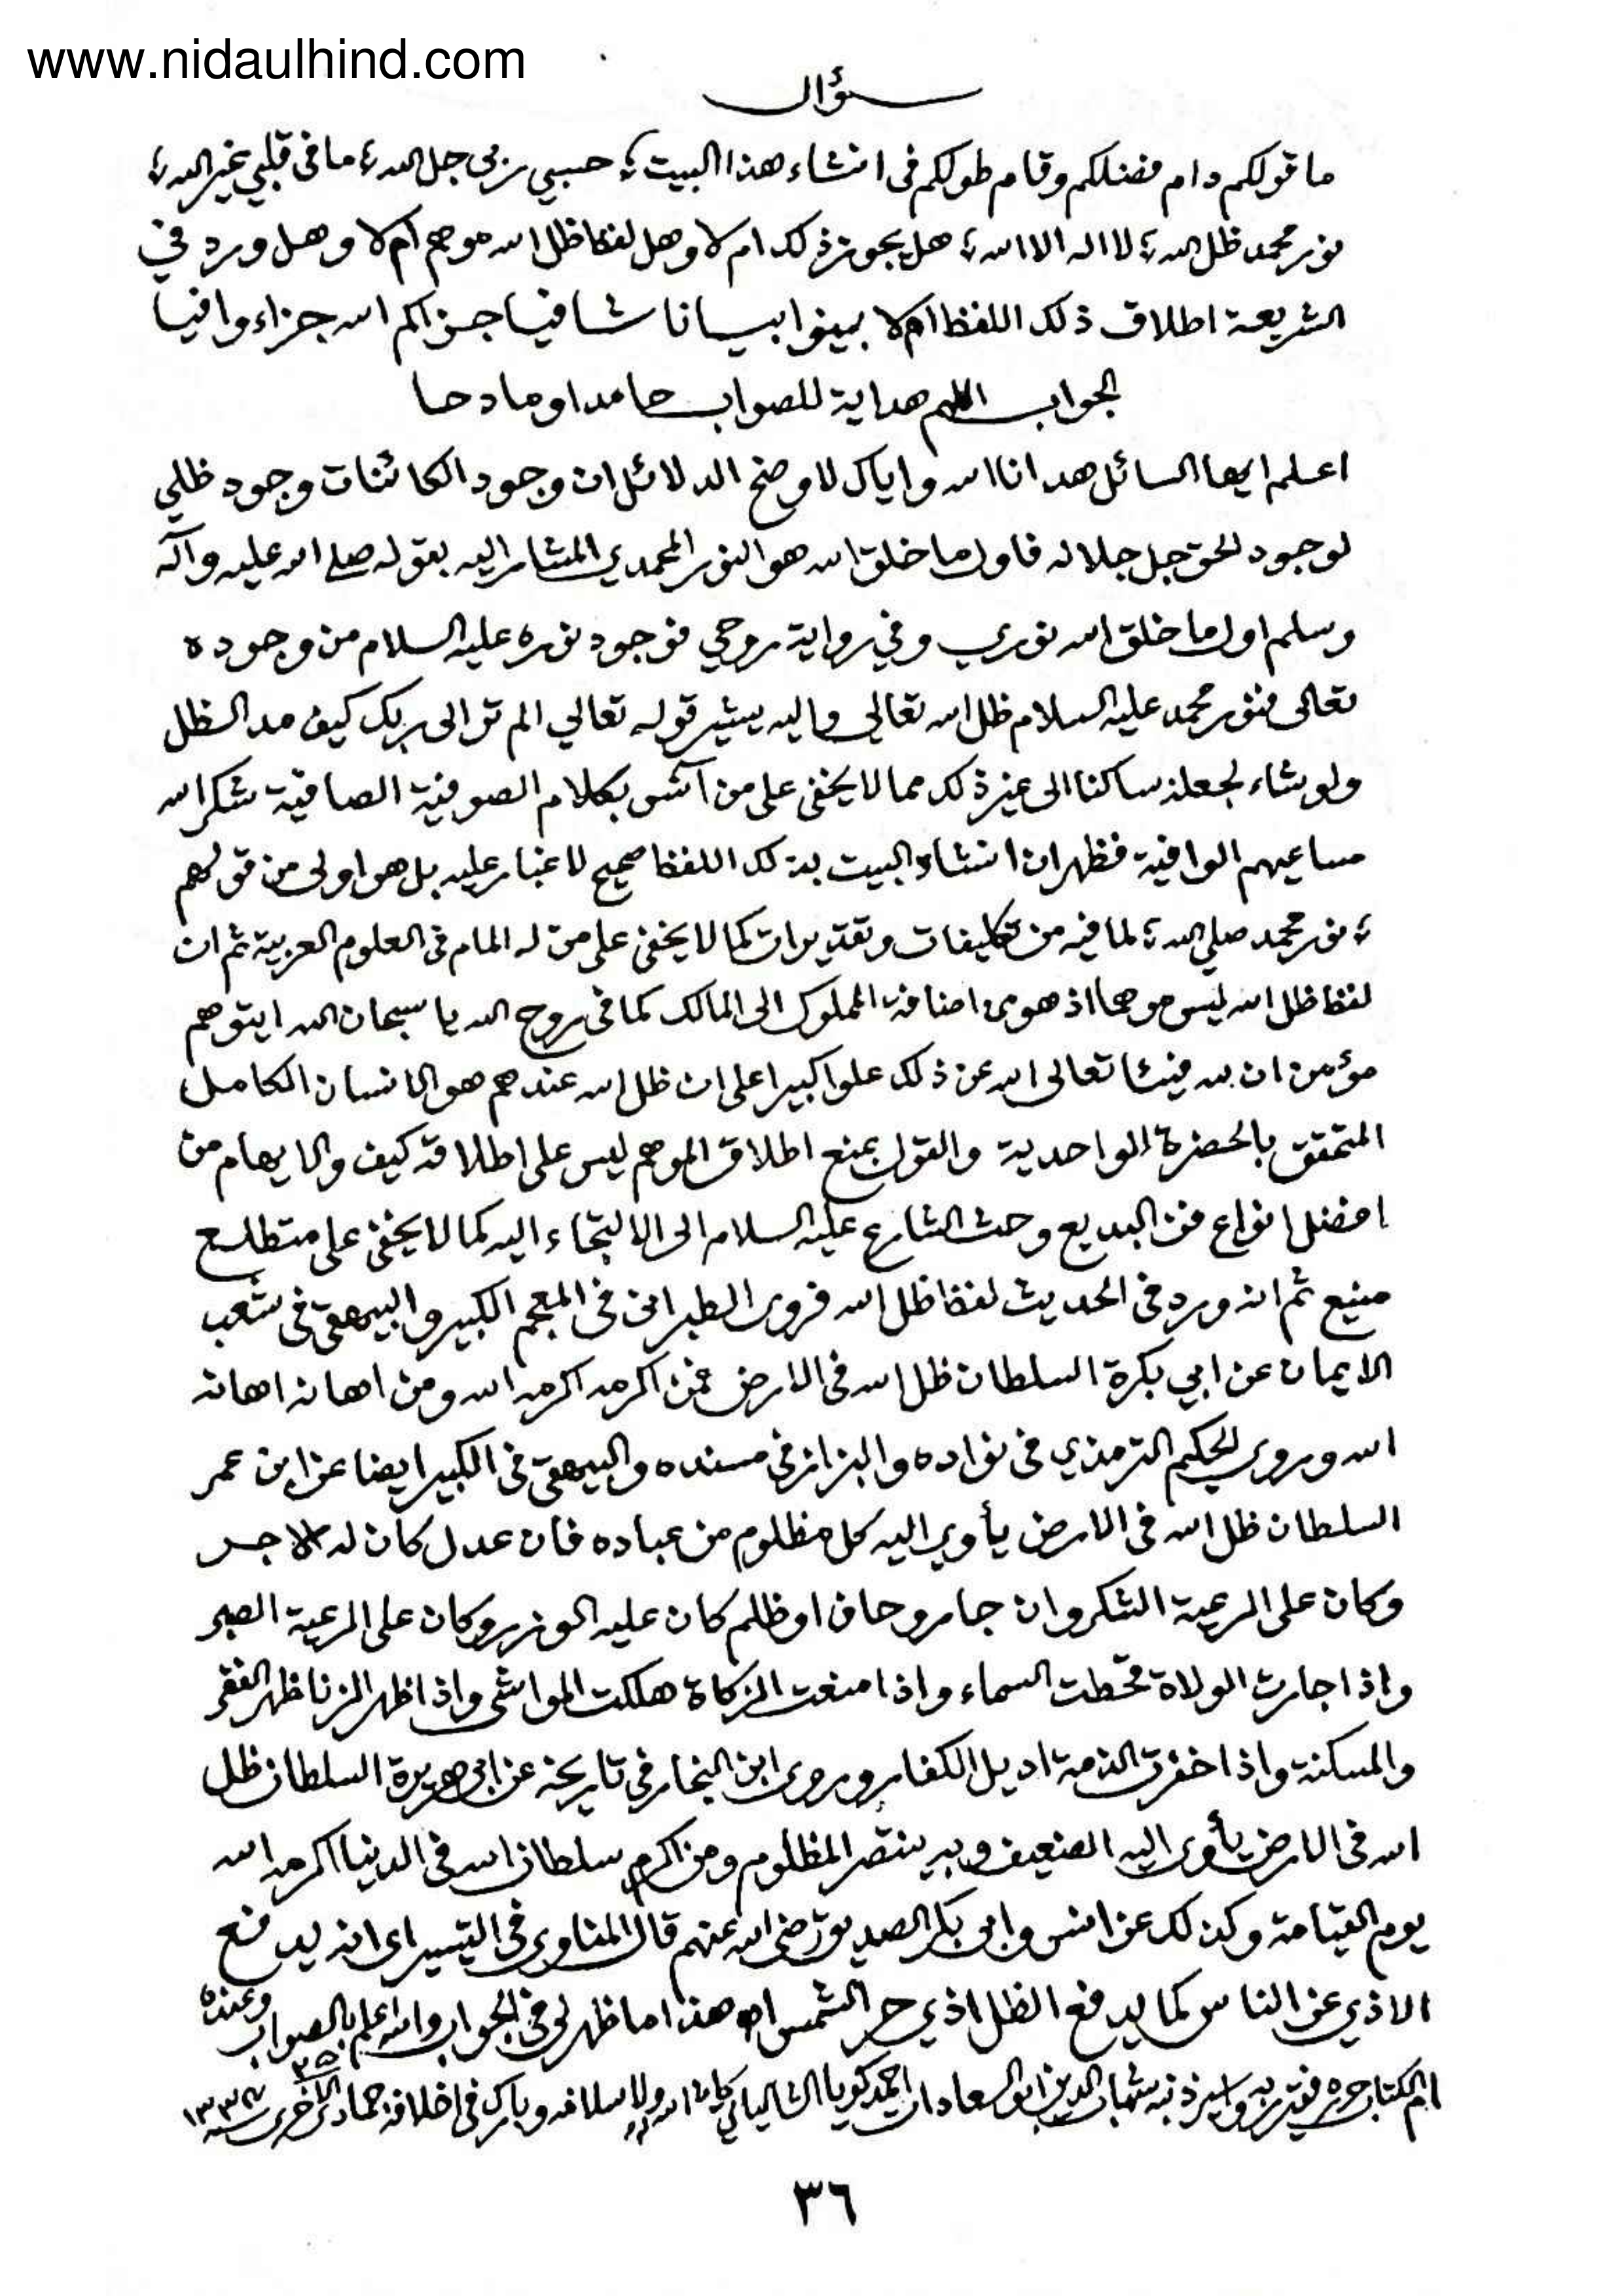 www.nidaulhind.com
سؤال
ما قولكم دام فضلكم وقام طولكم فى انشاء هذا البيت ؛ حسبي ربى جل الله ؛ ما فى قلبي غير الله ؛
نور محمد ظل الله ؛ لا اله الا الله ؛ هل يجوز ذلك ام لا وهل لفظ ظل الله موهم ام لا وهل ورد في
الشريعة اطلاق ذلك اللفظ ام لا بينوا بيانا شافيا جزاكم الله جزاء وافيا
الجواب اللهم هداية للصواب حامدا ومادحا
اعلم ايها السائل هدانا الله واياك لاوضح الدلائل ان وجود الكائنات وجود ظلي
لوجود الحق جل جلاله فاول ما خلق الله هو النور المحمدي المشار اليه بقوله صلى الله عليه وآله
وسلم اول ما خلق الله نوري وفي رواية روحي فوجود نوره عليه السلام من وجوده
تعالى فنور محمد عليه السلام ظل الله تعالى واليه يشير قوله تعالي الم تر الى ربك كيف مد الظل
ولو شاء لجعله ساكنا الى غير ذلك مما لا يخفى على من آنس بكلام الصوفية الصافية شكر الله
مساعيهم الوافية فظهر ان انشاء البيت بذلك اللفظ صحيح لا غبار عليه بل هو اولى من قولهم
؛ نور محمد صلي الله ؛ لما فيه من تكليفات وتقديرات كما لا يخفى على من له المام فى العلوم العربية ثم ان
لفظ ظل الله ليس موهما اذ هو من اضافة المملوك الى المالك كما فى روح الله يا سبحان الله ايتوهم
مؤمن ان لله فيئا تعالى الله عن ذلك علوا كبيرا على ان ظل الله عندهم هو الانسان الكامل
المتحقق بالحضرة الواحدية والقول بمنع اطلاق الموهم ليس على اطلاقه كيف والايهام من
افضل انواع فن البديع وحث الشارع عليه السلام الى الالتجاء اليه كما لا يخفى على متطلع
منيع ثم انه ورد فى الحديث لفظ ظل الله فروى الطبرانى فى المعجم الكبير والبيهقى فى شعب
الايمان عن ابي بكرة السلطان ظل الله فى الارض فمن اكرمه اكرمه الله ومن اهانه اهانه
الله وروى الحكيم الترمذي فى نوادره والبزاز فى مسنده والبيهقى فى الكبير ايضا عن ابن عمر
السلطان ظل الله فى الارض يأوي اليه كل مظلوم من عباده فان عدل كان له الاجر
وكان على الرعية الشكر وان جار وحاف او ظلم كان عليه الوزر وكان على الرعية الصبر
واذا جارت الولاة قحطت السماء واذا منعت الزكاة هلكت المواشى واذا ظهر الزنا ظهر الفقر
والمسكنة واذا خفرت الذمة اديل الكفار وروى ابن النجار في تاريخه عن ابى هريرة السلطان ظل
الله فى الارض يأوى اليه الضعيف وبه ينتصر المظلوم ومن اكرم سلطان الله فى الدنيا اكرمه الله
يوم القيامة وكذلك عن انس وابى بكر الصديق رضى الله عنهم قال المناوى فى التيسير اى انه يدفع
الاذي عن الناس كما يدفع الظل اذي حر الشمس اه هذا ما ظهر لى فى الجواب والله اعلم بالصواب وعنده
ام الكتاب حرره فقير ربه واسير ذنبه شهاب الدين ابو السعادات احمد كويا الشالياتي كان الله له ولاسلافه وبارك فى اخلافه ٢٥ جمادى الاخرى سنة ١٣٣٤
٣٦